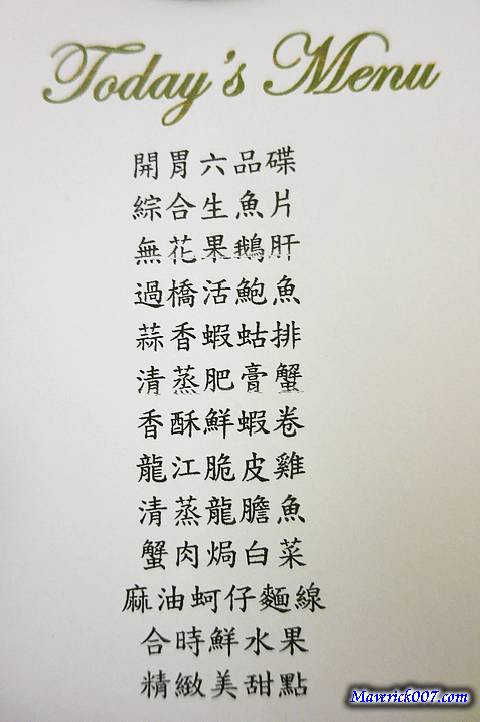 Today's Menu
開胃六品碟
綜合生魚片
無花果鵝肝
過橋活鮑魚
蒜香蝦蛄排
清蒸肥膏蟹
香酥鮮蝦卷
龍江脆皮雞
清蒸龍膽魚
蟹肉焗白菜
麻油蚵仔麵線
合時鮮水果
精緻美甜點
Maverick007.com